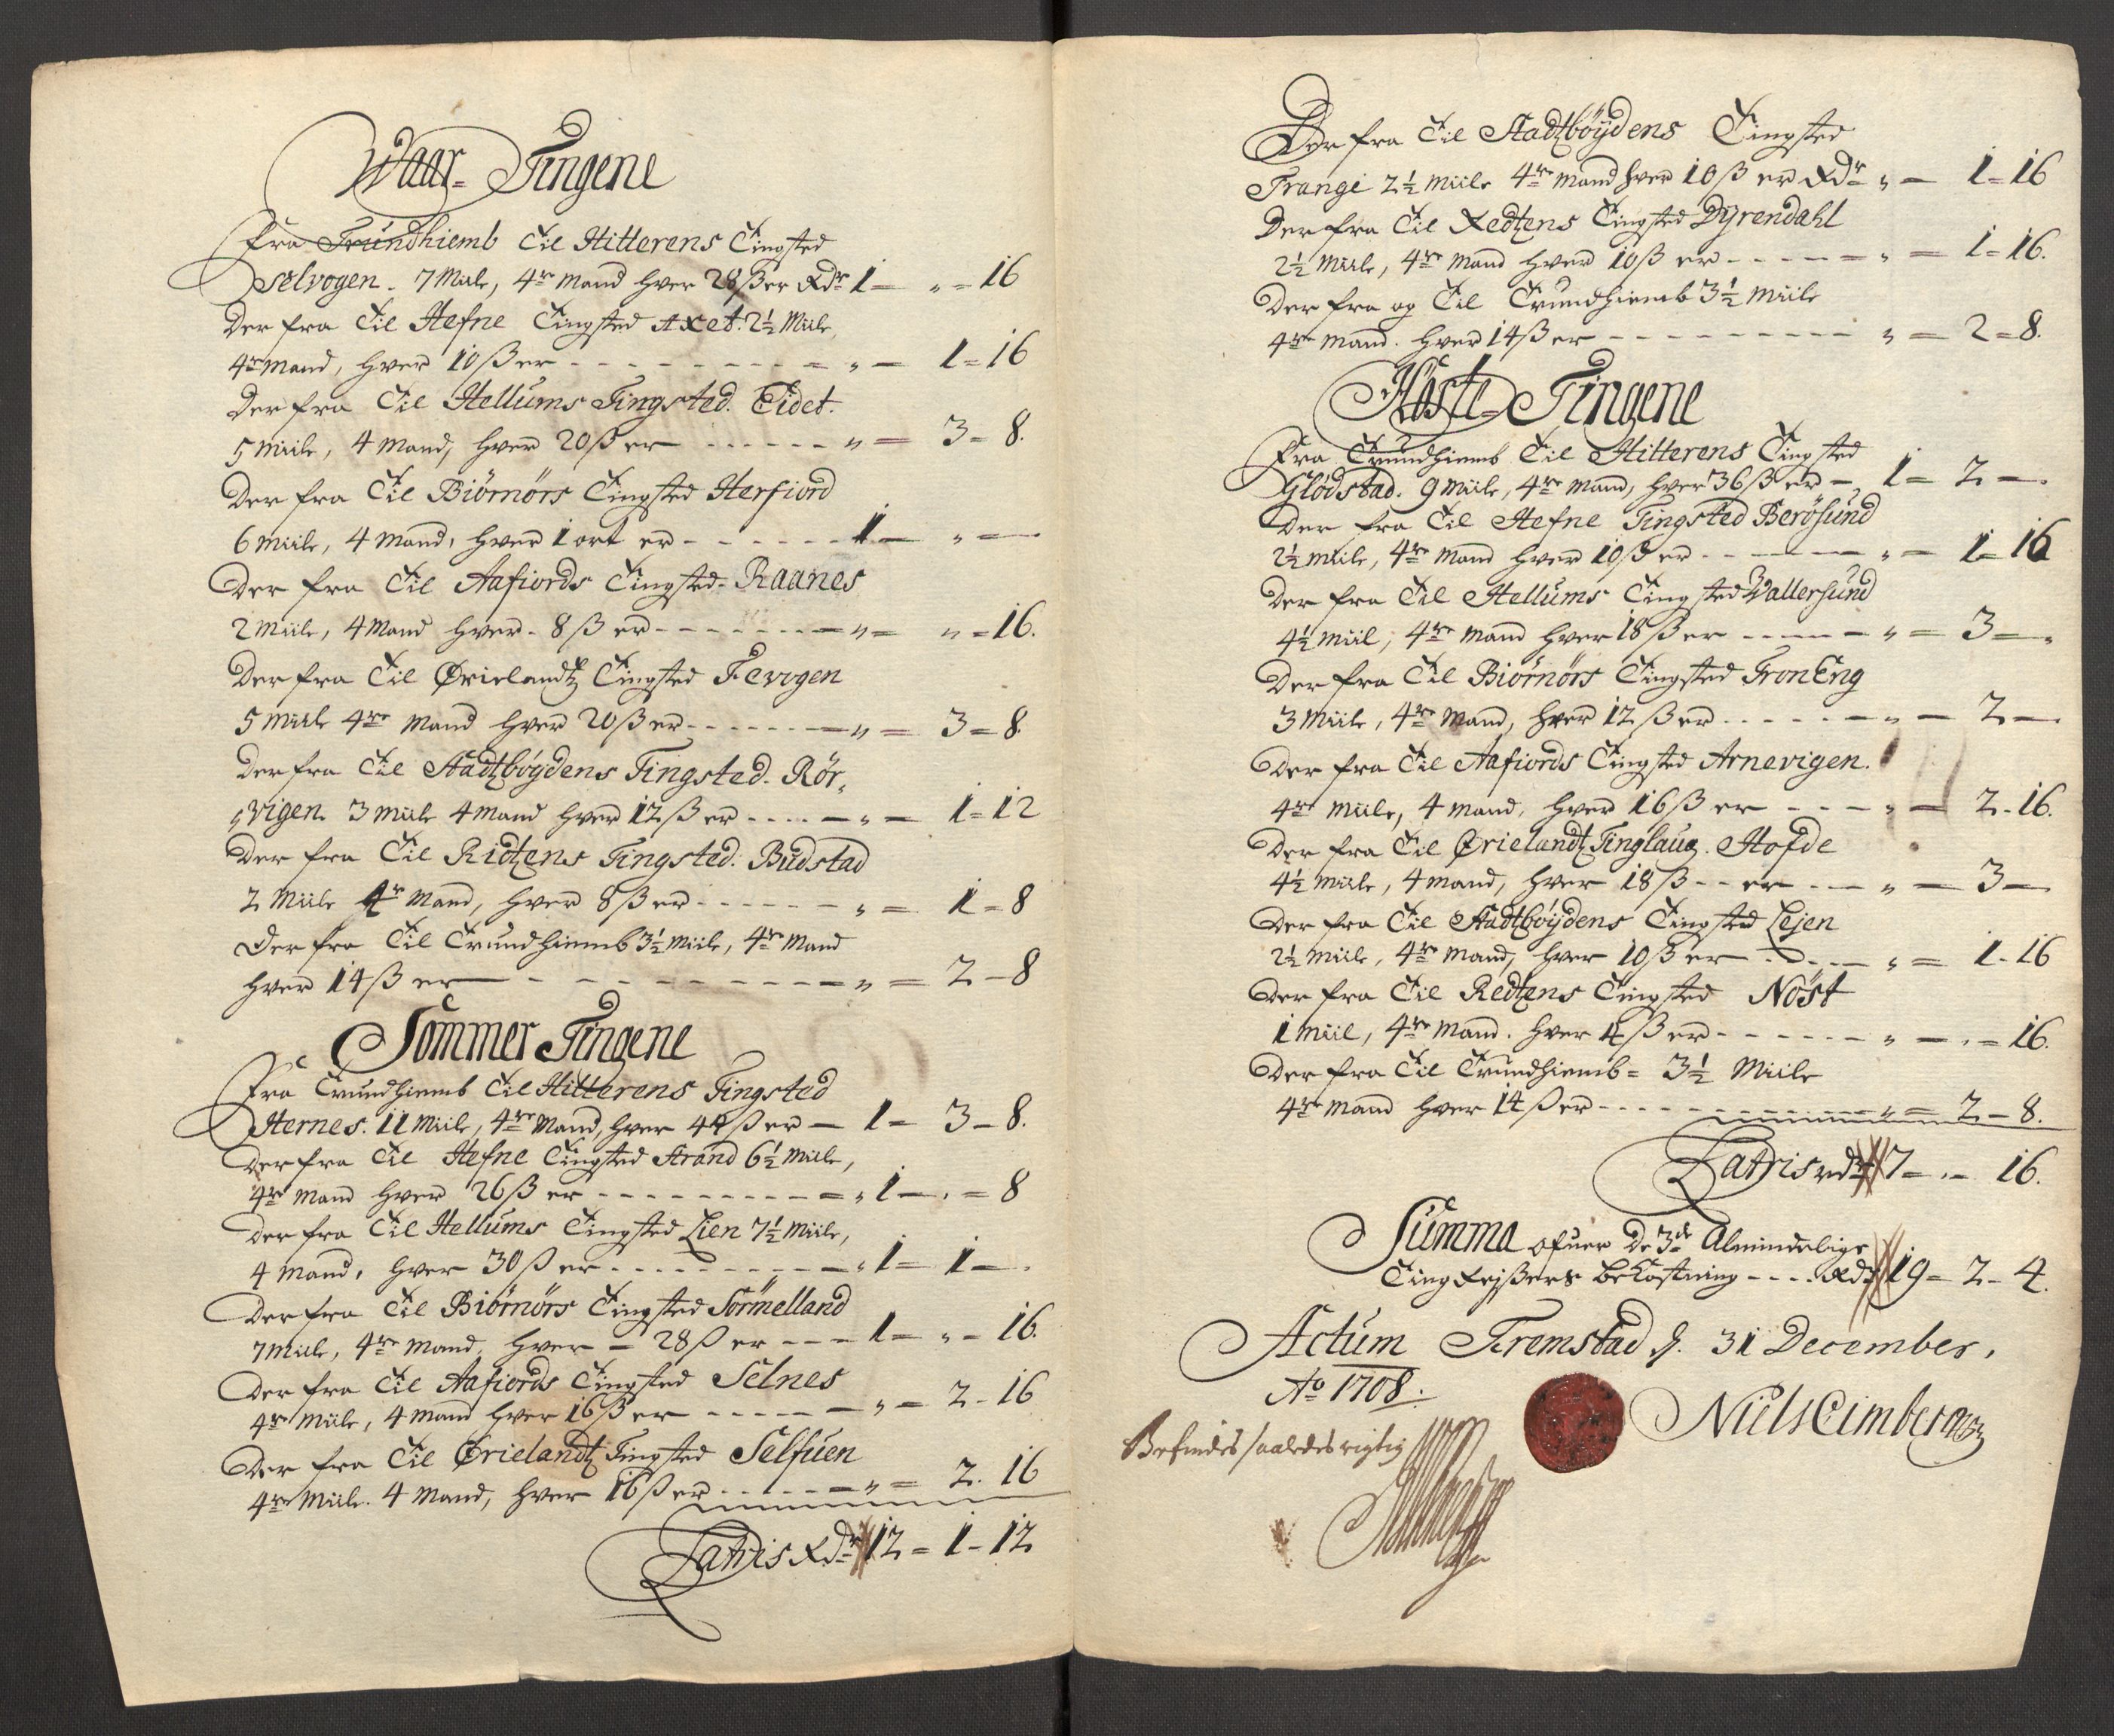 Waar- Tingene
Fra Trundhiemb Til Hitterens Tingsted
Selvogen. 7 Miile, 4re Mand hver 28 ß er Rdr 1 — „ = 16
Der fra Til Hefne Tingsted Axet. 2½ Miile,
4re Mand, hver 10 ß er - - - - - „ — 1 = 16
Der fra Til Hellums Tingsted. Eidet.
5 Miile, 4 Mand, hver 20 ß er - - - - - „ = 3 = 8.
Der fra Til Biörnörs Tingsted Herfiord
6 Miile, 4 Mand, hver 1 ort er - - - - - 1 — „ = —
Der fra Til Aafiords Tingsted - Raanes
2 Miile, 4 Mand hver - 8 ß er - - - - - „ = „ = 16.
Der fra Til Ørielandtz Tingsted Fevogen
5 Miile 4re Mand hver 20 ß er - - - - - „ = 3 = 8.
Der fra Til Stadtbøydens Tingsted. Rör-
vigen 3 Miile 4 Mand hver 12 ß er - - - - „ — 1 = 12
Der fra Til Ridtzens Tingsted. Budstad
2 Miile 4re Mand, hver 8 ß er - - - - - „ = 1 = 8
Der fra Til Trundhiemb 3½ Miile, 4re Mand
hver 14 ß er - - - - - „ = 2 — 8
Sommer Tingene
Fra Trundhiemb Til Hitterens Tingsted
Hernes. 11 Miile, 4re Mand, hver 44 ß er — 1 = 3 — 8.
Der fra Til Hefne Tingsted Strand 6½ Miile,
4re Mand hver 26 ß er - - - - - „ 1 — „ = 8
Der fra Til Hellums Tingsted Lien 7½ Miile,
4 Mand, hver 30 ß er - - - - - „ 1 = 1 — „
Der fra Til Biörnörs Tingsted Sörmelland
7 Miile, 4re Mand, hver = 28 ß er - - - 1 = „ - 16.
Der fra Til Aafiords Tingsted Selnes
4re Miile, 4 Mand hver 16 ß er - - - - - „ = 2 - 16
Der fra Til Ørielandtz Tingsted Selfuen
4re Miile. 4 Mand, hver 16 ß er - - - - - „ = 2. 16
Latris Rdr 12 = 1 - 12
Der fra Til Stadtbøydens Tingsted
Trangi 2½ Miile 4re Mand hver 10 ß er Rdr „ — 1 = 16
Der fra Til Redtzens Tingsted Dyrendahl
2½ Miile, 4re Mand hver 10 ß er - - - - - „ = 1 = 16.
Der fra og Til Trundhiemb 3½ Miile
4re Mand. hver 14 ß er - - - - - „ = 2 = 8.
Höste- Tingene
Fra Trundhiemb Til Hitterens Tingsted
Glödstad. 9 Miile, 4re Mand, hver 36 ß er — 1 = 2 — „
Der fra Til Hefne Tingsted Berösund
2½ Miile, 4re Mand hver 10 ß er - - - - „ = 1 = 16
Der fra Til Hellums Tingsted Vallersund
4½ Miil, 4re Mand hver 18 ß er - - - - „ = 3 — „
Der fra Til Biörnörs Tingsted TronEng
3 Miile, 4re Mand, hver 12 ß er - - - - - „ — 2 — „
Der fra Til Aafiords Tingsted Arnevigen.
4re Miile, 4 Mand, hver 16 ß er - - - „ — 2 - 16.
Der fra Til Ørielandtz Tinglaug. Hofde
4½ Miile, 4 Mand, hver 18 ß - - er - - - „ — 3 — „
Der fra Til Stadtbøydens Tingsted Lejen
2½ Miile, 4re Mand, hver 10 ß er - - - - „ = 1 - 16
Der fra Til Redtzens Tingsted Nöst
1 Miil, 4re Mand. hver 4 ß er - - - - - „ — „ = 16.
Der fra Til Trundhiemb = 3½ Miile
4re Mand hver 14 ß er - - - - - „ = 2 — 8.
Latris rdr 7 = „ — 16.
Summa ofuer de 3de Almindelige
Ting Rejßers bekostning - - - - Rdr 19 = 2 - 4.
Actum Tremstad d. 31 December,
Ao 1708.
Niels Cimberg
Befindes saaledes rigtig